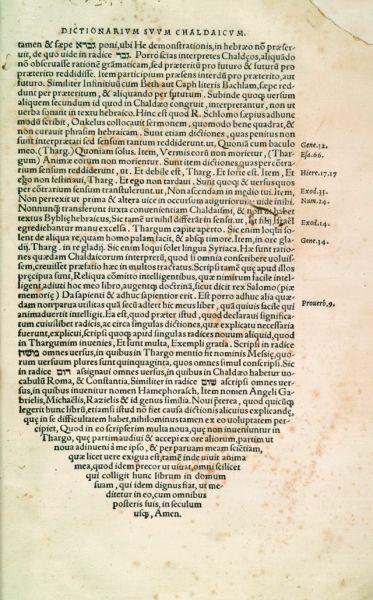 DICTIONARIVM SVVM CHALDAICVM.
tamen & sæpe גברא poni, ubi He demonstrationis, in hebræo nō præfer-
uit, de quo uide in radice גבר. Porrò scias interpretes Chaldęos, aliquādo
nō obseruasse rationē grāmaticam, sed præteritū pro futuro & futurū pro
præterito reddidisse. Item participium præsens interdū pro præterito, aut
futuro. Similiter Infinitiuū cum Beth aut Caph literis Bachlam, sæpe red-
dunt per præteritum, & aliquando per futurum. Subinde quoq; uersum
aliquem secundum id quod in Chaldæo congruit, interpretantur, non ut
uerba sonant in textu hebraico. Hinc est quod R. Schlomo sæpius adhunc
modū scribit, Onkelos collocauit sermonem, quomodo bene quadrat, &
non curauit phrasim hebraicam. Sunt etiam dictiones, quas penitus non
sunt interpretati sed sensum tantum reddiderunt. ut, Quoniā cum baculo
meo. (Tharg.) Quoniam solus. Item, Vermis eorū non morietur, (Thar-
gum) Animæ eorum non morientur. Sunt item dictiones, quas per cōtra-
rium sensum reddiderunt, ut. Et debile est, Tharg. Et forte est. Item, Et
ego non festinaui, Tharg. Et ego non tardaui. Sunt quoq; & uersus quos
per cōtrarium sensum transtulerunt. ut, Non ascendam in medio tui. item,
Non perrexit ut prima & altera uice in occursum auguriorum, uide inibi.
Nonnunq̃ transferunt iuxta conuenientiam Chaldaismi, & non iuxta
textus Byblię hebraicus, Sic tamē ut nihil differāt in sensu. ut, & filij Israël
egrediebantur manu excelsa. Thargum capite aperto. Sic enim loqui so-
lent de aliqua re, quam homo palam facit, & absq; timore. Item, in ore gla-
dij, Tharg. in re gladij. Sic enim loqui solet lingua Syriaca. Hæ sunt ratio-
nes quædam Chaldaicorum interpretū, quod si omnia conscribere uoluis-
sem, creuisset præfatio hæc in multos tractatus. Scripsi tamē quę apud illos
pręcipua sunt, Reliqua cōmitto intelligentibus, quæ nimirum facile intelli-
gent, adiuti hoc meo libro, auguentq; doctrinā, sicut dicit rex Salomo (piæ
memorię) Da sapienti & adhuc sapientior erit. Est porro adhuc alia quæ-
dam non parua utilitas quā secū adfert hic meus liber, quā quiuis facile qui
animaduertit intelligit. Ea est, quod præter istud, quod declaraui significa-
tum cuiuslibet radicis, ac circa singulas dictiones, quæ explicatu necessaria
fuerunt, explicui, scripsi quoq; apud singulas radices nouum aliquid, quod
in Thargumim inuenies, Et sunt multa, Exempli gratia. Scripsi in radice
משח omnes uersus, in quibus in Thargo mentio fit nominis Messię, quo-
rum uersuum plures sunt quinquaginta, quos omnes simul conscripsi. Sic
in radice רום assignaui omnes uersus, in quibus in Chaldæo habetur uo-
cabulū Roma, & Constantia. Similiter in radice שום ascripsi omnes uer-
sus, in quibus inuenitur nomen Hamephorasch, Item nomen Angeli Ga-
brielis, Michaëlis, Razielis & id genus similia. Nouſ preterea, quod quicūq;
legerit hunc librū, etiamsi istud nō fiet causa dictionis alicuius explicandę,
quę in se difficultatem habet, nihilominus tamen ex eo uoluptatem per-
cipiet, Quod in eo scripserim multa noua, quę non inueniuntur in
Thargo, quę partim audiui & accepi ex ore aliorum, partim ut
noua adinueni à me ipso, & per paruam meam scietiam,
quæ licet uere exigua est, tamē inde uiuit anima
mea, quod idem precor ut uiuat, omni scilicet
qui colligit hunc librum in domum
suam, qui idem dignus fiat, ut me-
ditetur in eo, cum omnibus
posteris suis, in seculum
usq;, Amen.
Gene.32.
Esa.66.
Hiere.17.17
Exod.33.
Num.24.
Exod.14.
Gene.34.
Prouerb.9.